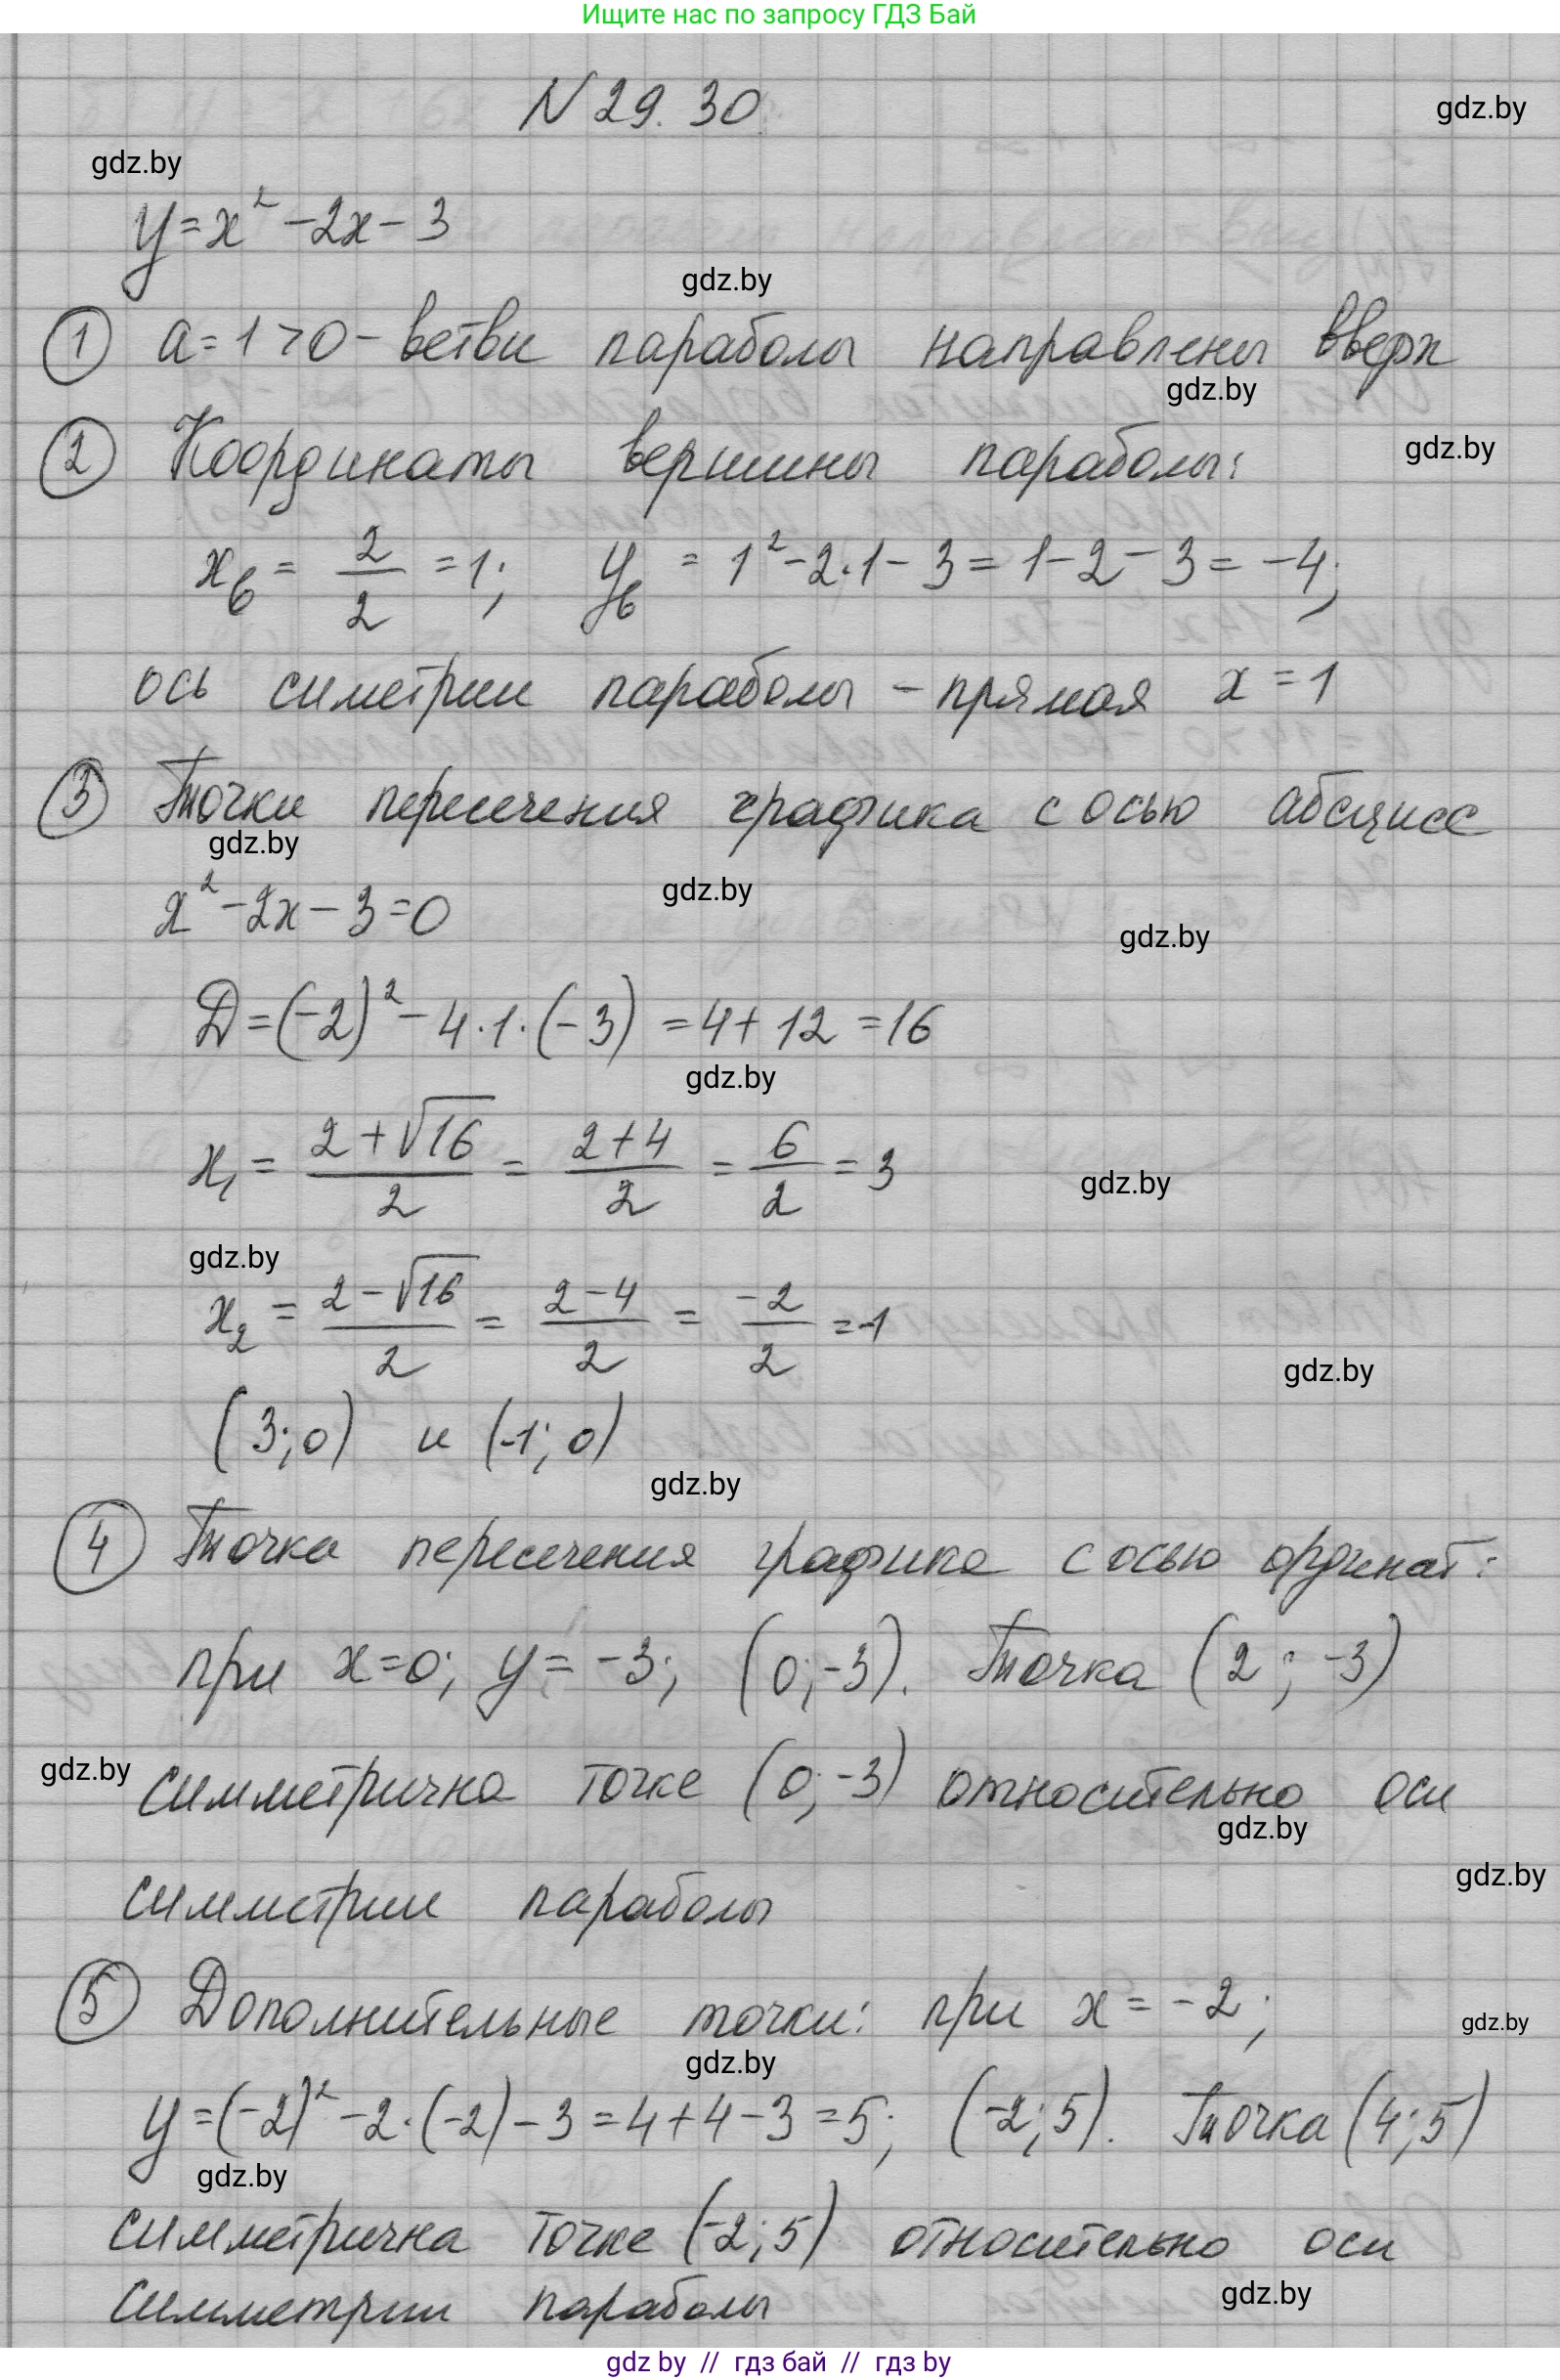 Ищите нас по запросу ГДЗ Бай
N 29. 30
gdz.by
gdz.by
y = x² - 2x - 3
gdz.by
① a = 1 > 0 - ветви параболы направлены вверх
gdz.by
② Координаты вершины параболы:
gdz.by
x_в = 2/2 = 1; y_в = 1² - 2·1 - 3 = 1 - 2 - 3 = -4;
ось симетрии параболы - прямая x = 1
③ Точки пересечения графика с осью абсцисс
gdz.by
x² - 2x - 3 = 0
gdz.by
gdz.by
D = (-2)² - 4·1·(-3) = 4 + 12 = 16
gdz.by
x₁ = (2+√16)/2 = (2+4)/2 = 6/2 = 3
gdz.by
gdz.by
x₂ = (2-√16)/2 = (2-4)/2 = -2/2 = -1
gdz.by
(3; 0) и (-1; 0)
gdz.by
④ Точка пересечения графика с осью ординат:
при x = 0; y = -3; (0; -3). Точка (2; -3)
gdz.by
симметрична точке (0; -3) относительно оси
gdz.by
gdz.by
симметрии параболы
⑤ Дополнительные точки: при x = -2;
gdz.by
gdz.by
y = (-2)² - 2·(-2) - 3 = 4 + 4 - 3 = 5; (-2; 5). Точка (4; 5)
gdz.by
симметрична точке (-2; 5) относительно оси
gdz.by
симметрии параболы
gdz by // гдз бай // гдз by